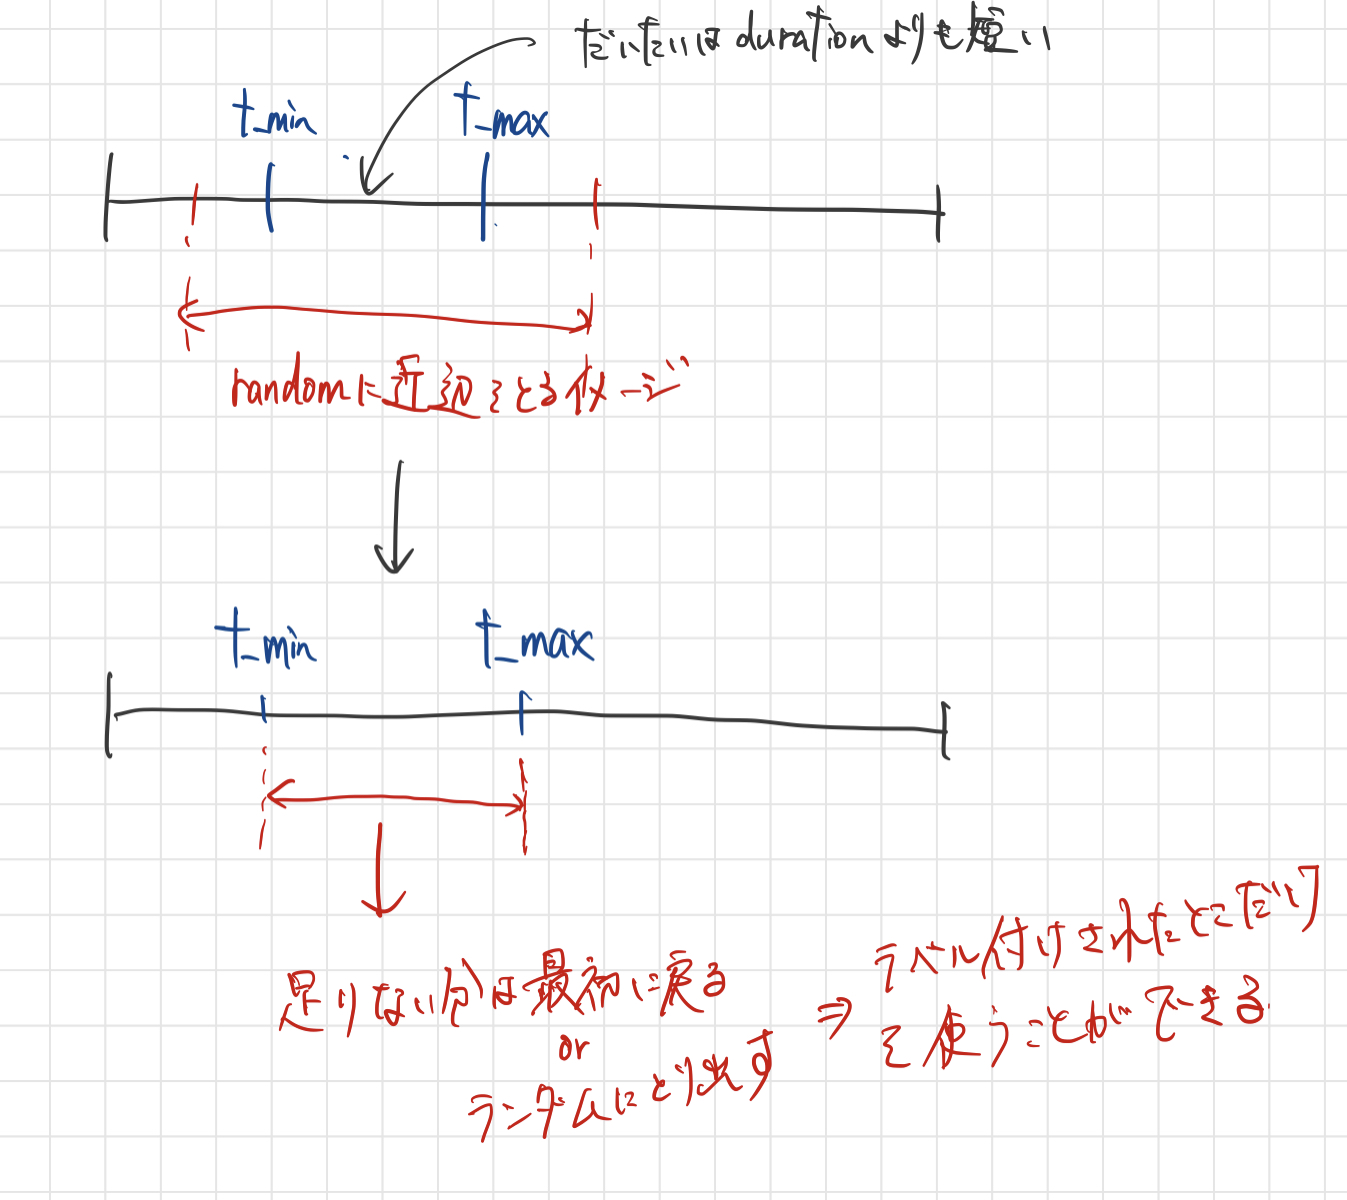 だいたいは durationよりも短い
t_min
t_max
randomに近辺をとるイメージ
t_min
t_max
足りない分は最初に戻る
or
ランダムにとり出す
⇒
ラベル付けされたとこだけ
を使うことができる